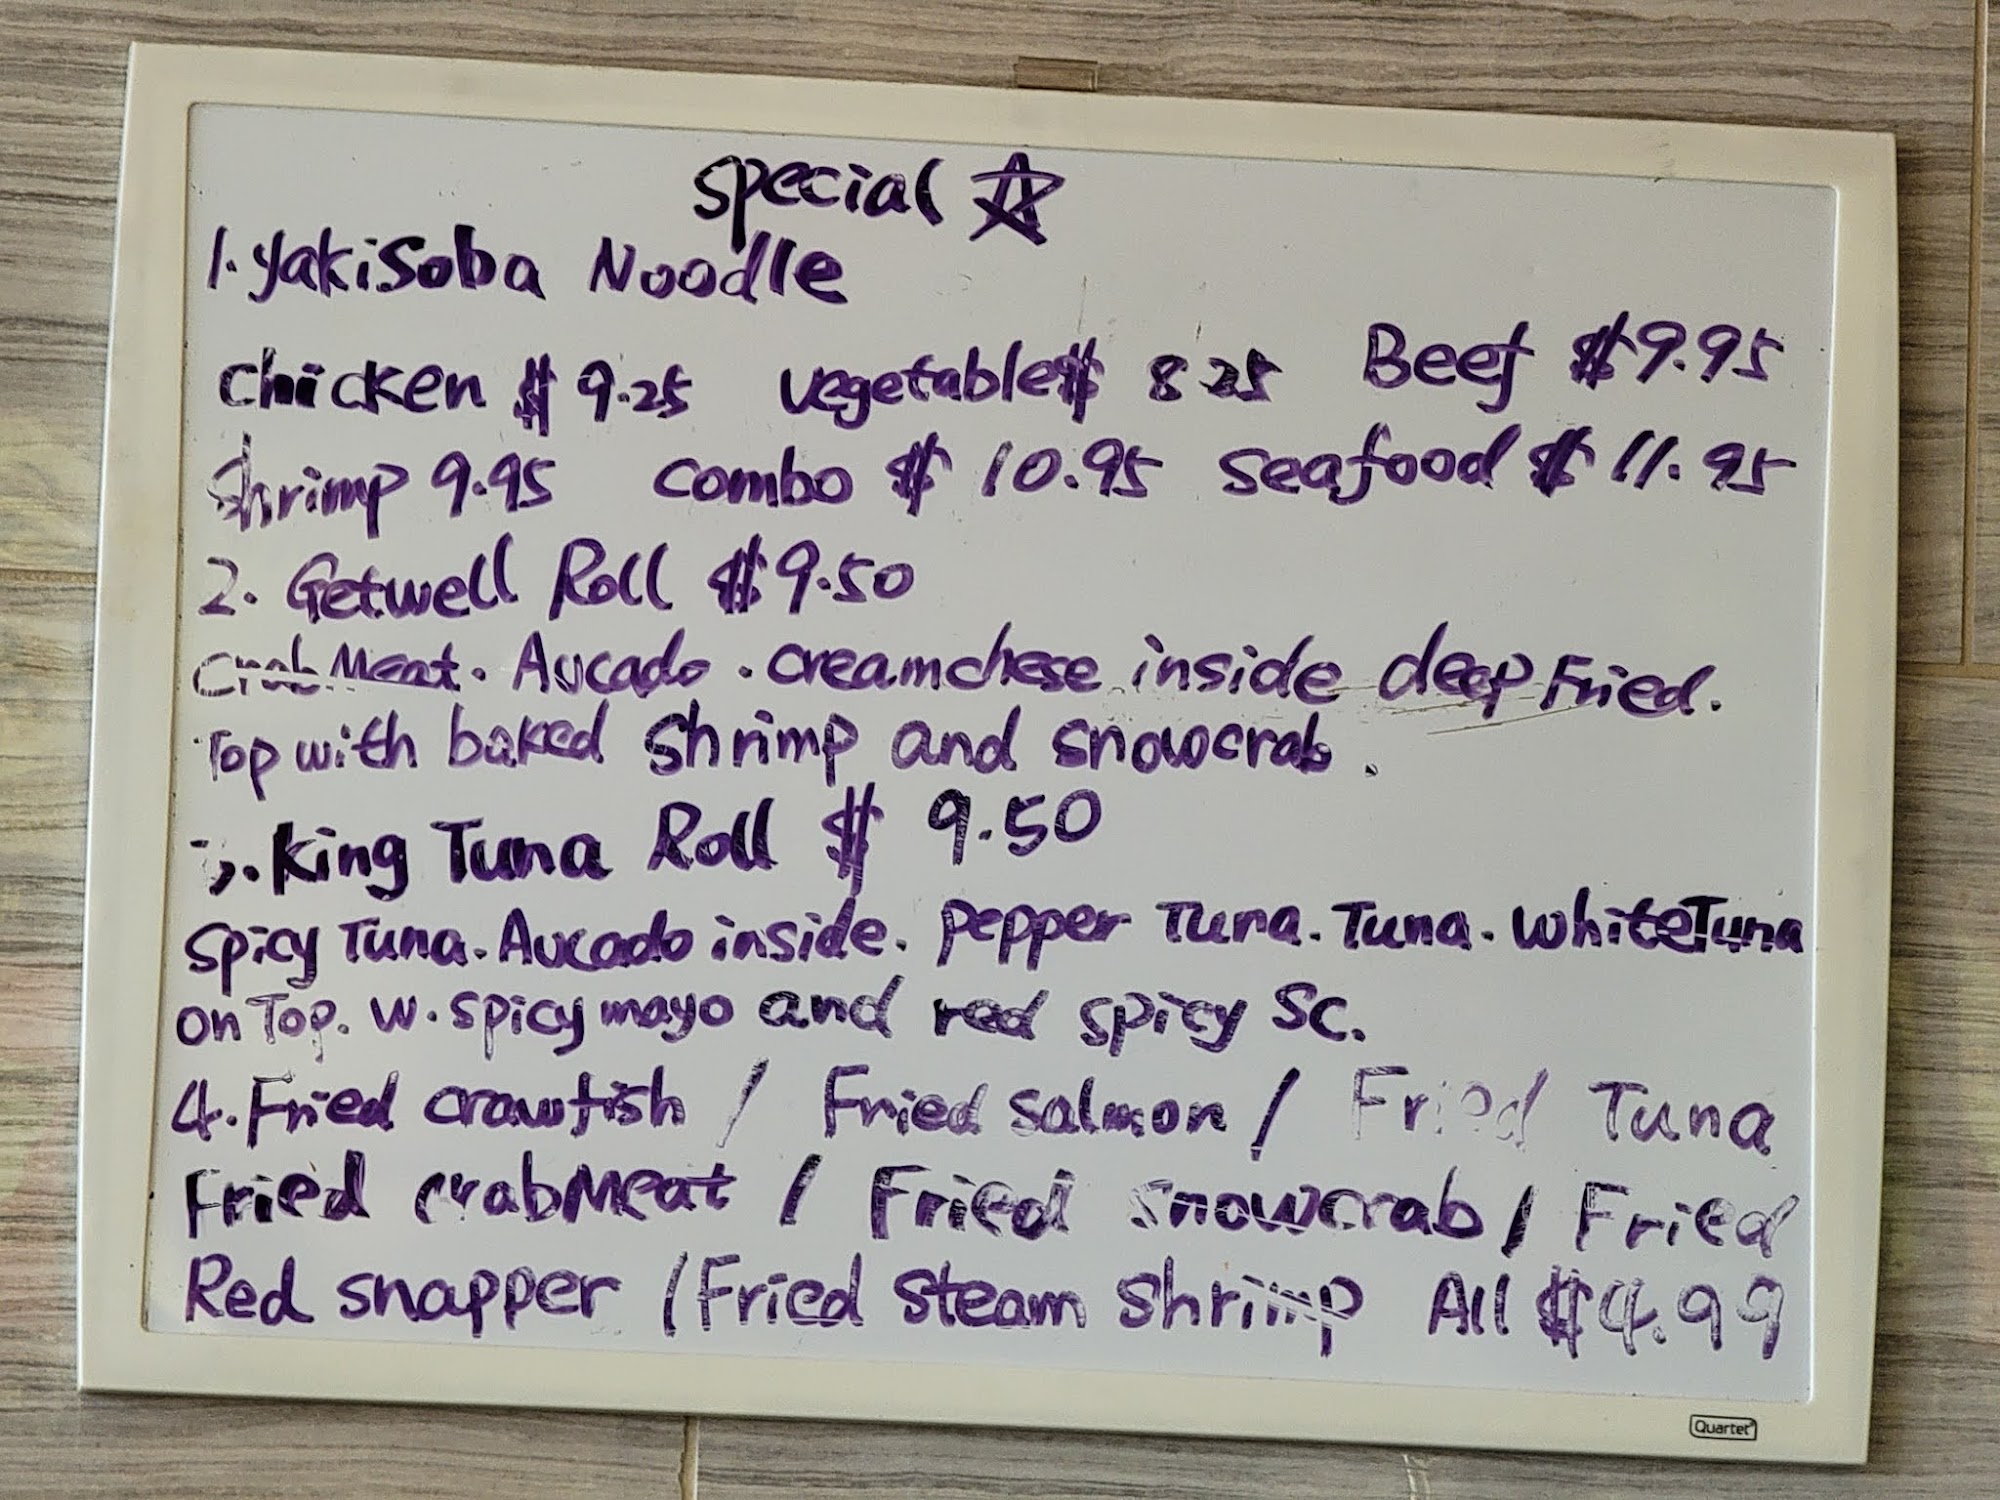 Special ☆
1. Yakisoba Noodle
Chicken $ 9.25 vegetable $ 8.25 Beef $9.95
Shrimp 9.95 Combo $ 10.95 Seafood $ 11.95
2. Getwell Roll $9.50
Crab Meat. Avcado. creamchese inside deep Fried.
Top with baked Shrimp and snowcrab.
King Tuna Roll $ 9.50
Spicy Tuna. Avcado inside. pepper Tuna. Tuna. white Tuna
on Top. w. spicy mayo and red spicy Sc.
4. Fried crawfish / Fried Salmon / Fried Tuna
Fried crabMeat / Fried Snowcrab / Fried
Red snapper / Fried Steam Shrimp All $4.99
Quartet